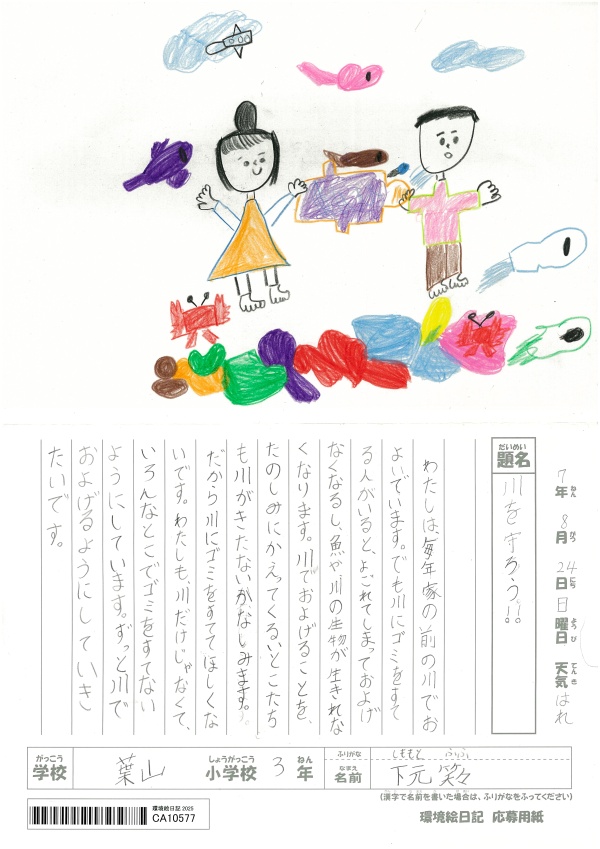 7年ねん 8月がつ 24日にち 日曜日ようび 天気てんき はれ
題名だいめい
川を守ろう!!
わたしは、毎年家の前の川でお
よいでいます。でも川にゴミをすて
る人がいると、よごれてしまっておよげ
なくなるし、魚や川の生物が生きれな
くなります。川でおよげることを、
たのしみにかえってくるいとこたち
も川がきたないがなしみます。
だから川にゴミをすててほしくな
いです。わたしも、川だけじゃなくて、
いろんなとこでゴミをすてない
ようにしています。ずっと川で
およげるようにしていき
たいです。
学校がっこう 葉山 小学校しょうがっこう 3年ねん ふりがな しももと
名前なまえ 下元 笑々
(漢字で名前を書いた場合は、ふりがなをふってください)
環境絵日記 2025
CA10577
環境絵日記 応募用紙